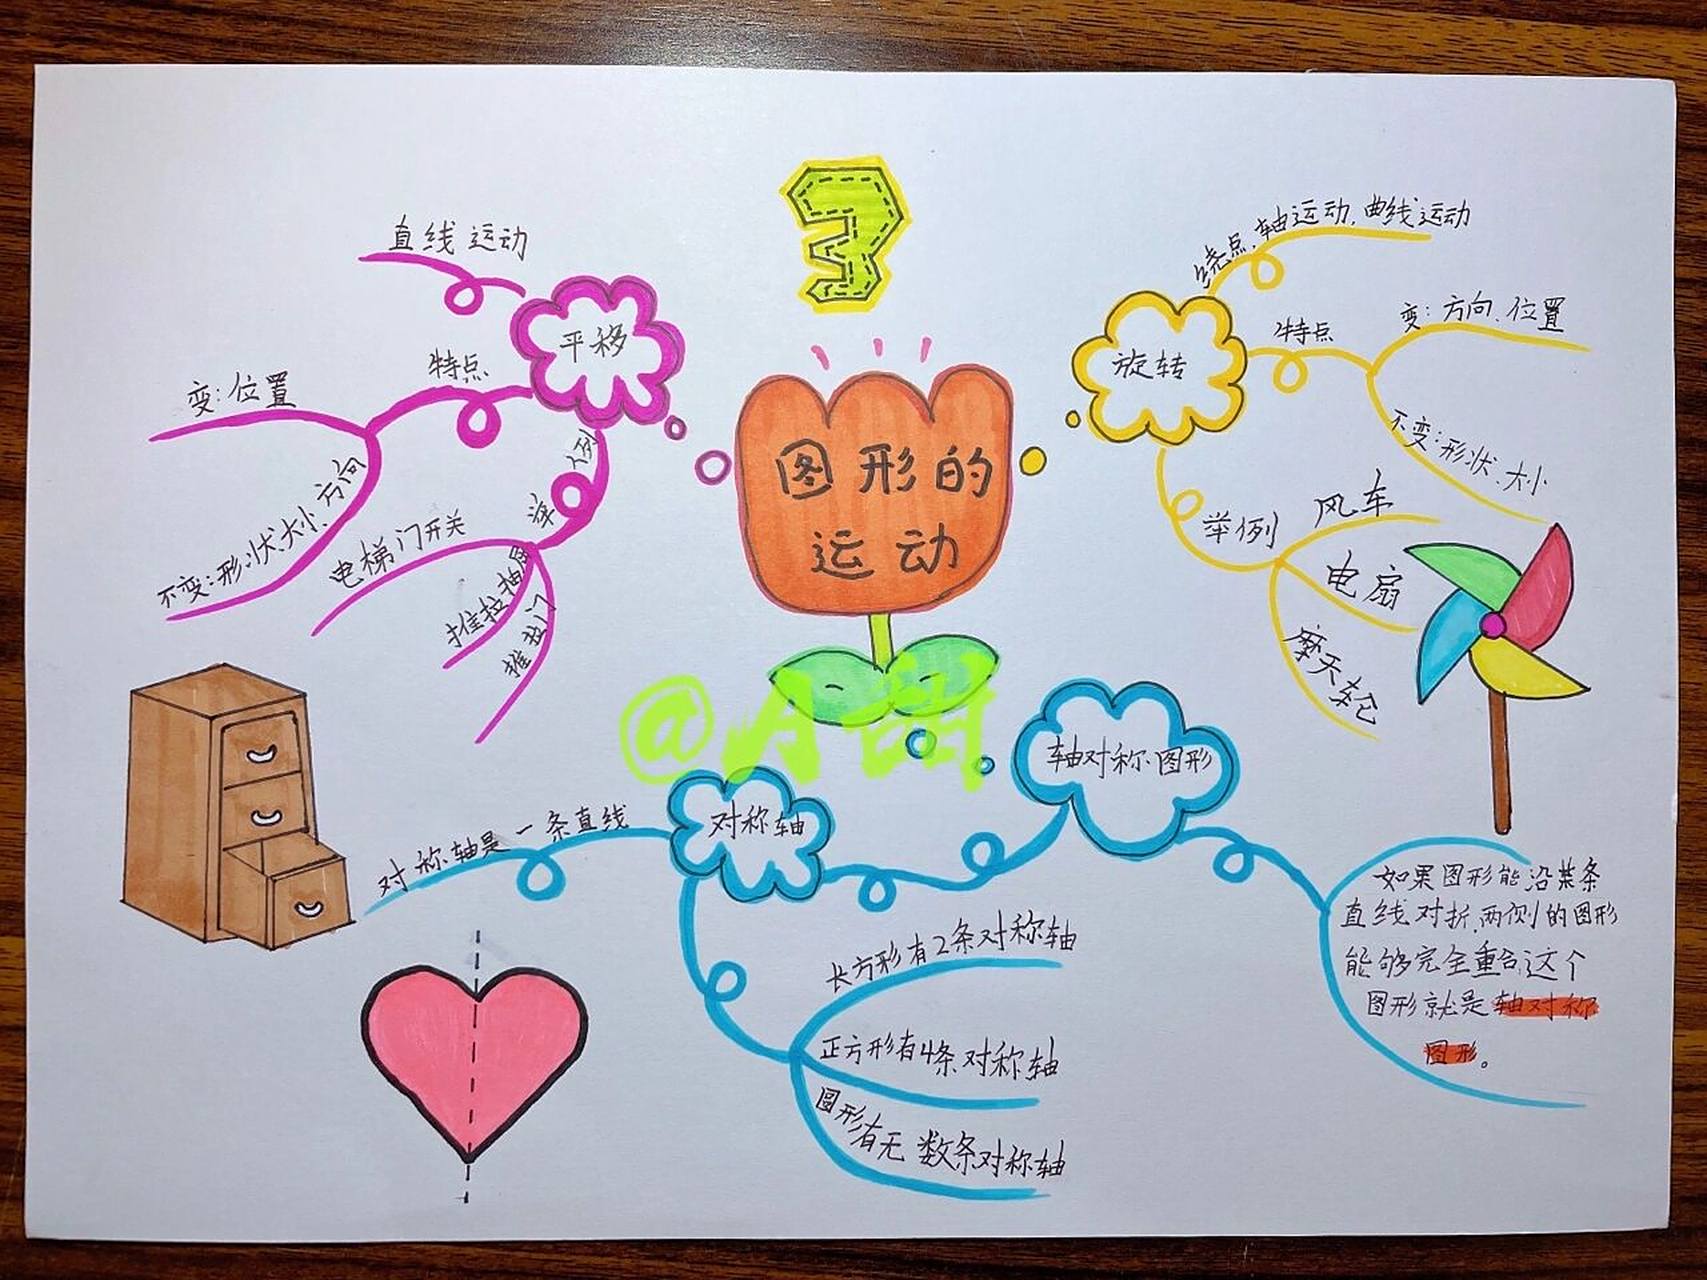 3
图形的
运动
平移
直线运动
特点
变:位置
不变:形状.大小.方向
举例
电梯门开关
推拉抽屉
推拉门
旋转
绕点.轴运动.曲线运动
特点
变:方向.位置
不变:形状.大小
举例
风车
电扇
摩天轮
轴对称图形
如果图形能沿某条
直线对折,两侧的图形
能够完全重合,这个
图形就是轴对称
图形。
对称轴
对称轴是一条直线
长方形有2条对称轴
正方形有4条对称轴
圆形有无数条对称轴